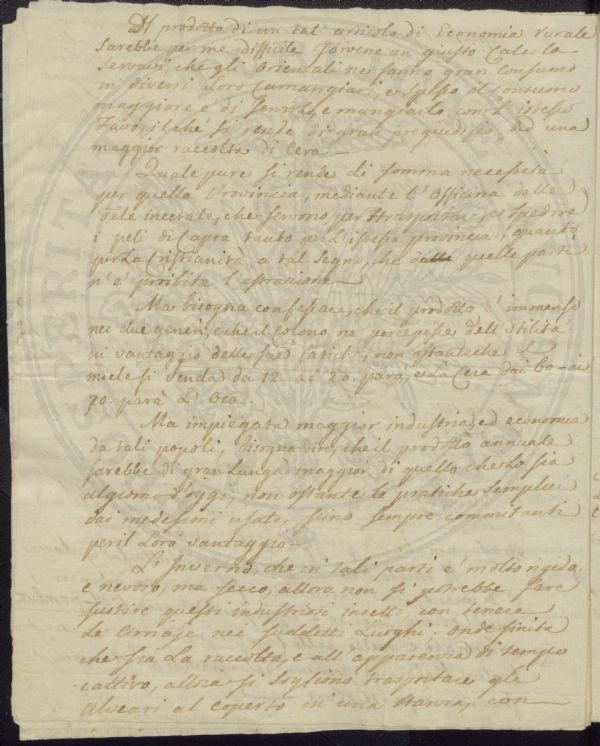 Il prodotto di un tal' articolo di Economia rurale
sarebbe per me difficile
che gli Orientali ne fanno gran consumo
in diversi Loro Camangiari, e spesso al consumo
maggiore è di servirlo, e mangiarlo con l'istesso
Favo, il che si rende di gran pregiudizio ad una
maggior raccolta di Cera.—
Quale pure si rende di somma necessità
per quella Provincia, mediante l'Officina delle
Tele incerate, che servono per trasportare, e spedire
i peli di Capra tanto per l'istessa provincia, quanto
per La Cristianità a tal segno, che da quelle parti
n'è proibita l'estrazione.—
Ma bisogna confessare, che il prodotto è immenso
nei due generi, e che il Colono ne percepisce dell'utilità
in vantaggio delle sue fatiche, non ostante che il
miele si venda da 12. ai 20. parà, e La Cera dai 60- ai
70. parà L'Oca.
Ma impiegata maggior industria, ed economia
da tali popoli, bisogna dire, che il prodotto annuale
sarebbe di gran Lunga maggior di quello che Lo sia
al giorno d'oggi, non ostante le pratiche semplici
dai medesimi usate, siino sempre commitanti
per il Loro vantaggio.—
L'Inverno, che in tali parti è molto rigido
e nevoso, ma secco, allora non si potrebbe fare
sussistere questi industriosi insetti con tenere
le Arniaje nei suddetti Luoghi. Onde finita
che sia La raccolta, e all'apparenza di tempo
cattivo, allora si sogliono trasportare gli
alveari al coperto in una stanza, con